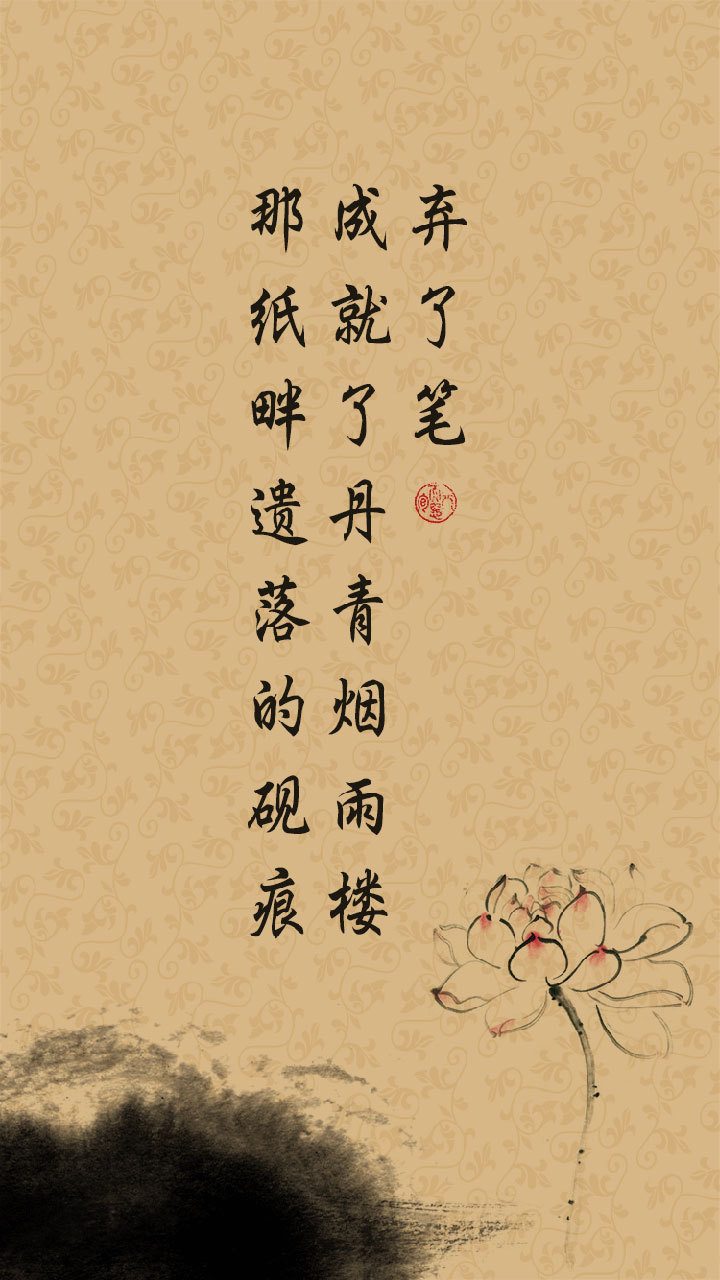 那纸畔遗落的砚痕
成就了丹青烟雨楼
弃了笔